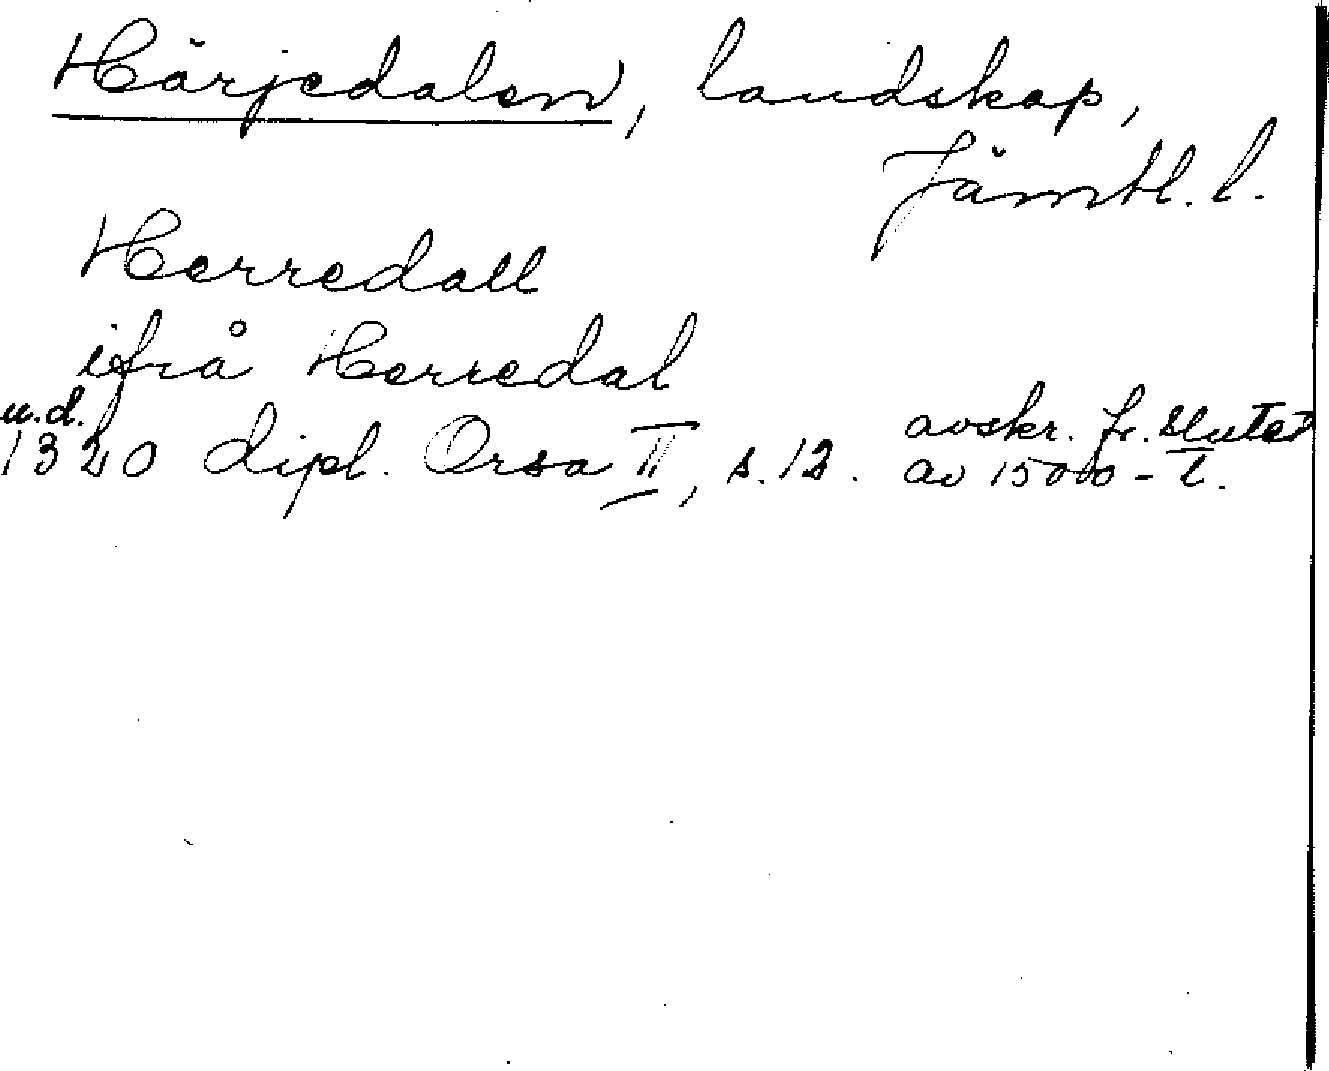 Härjedalen, landskap,
Jämtl. l.
Herredall
ifrå Herredal
u.d.
1320 dipl. Orsa II, s. 12. avskr. fr. slutet
av 1500-t.